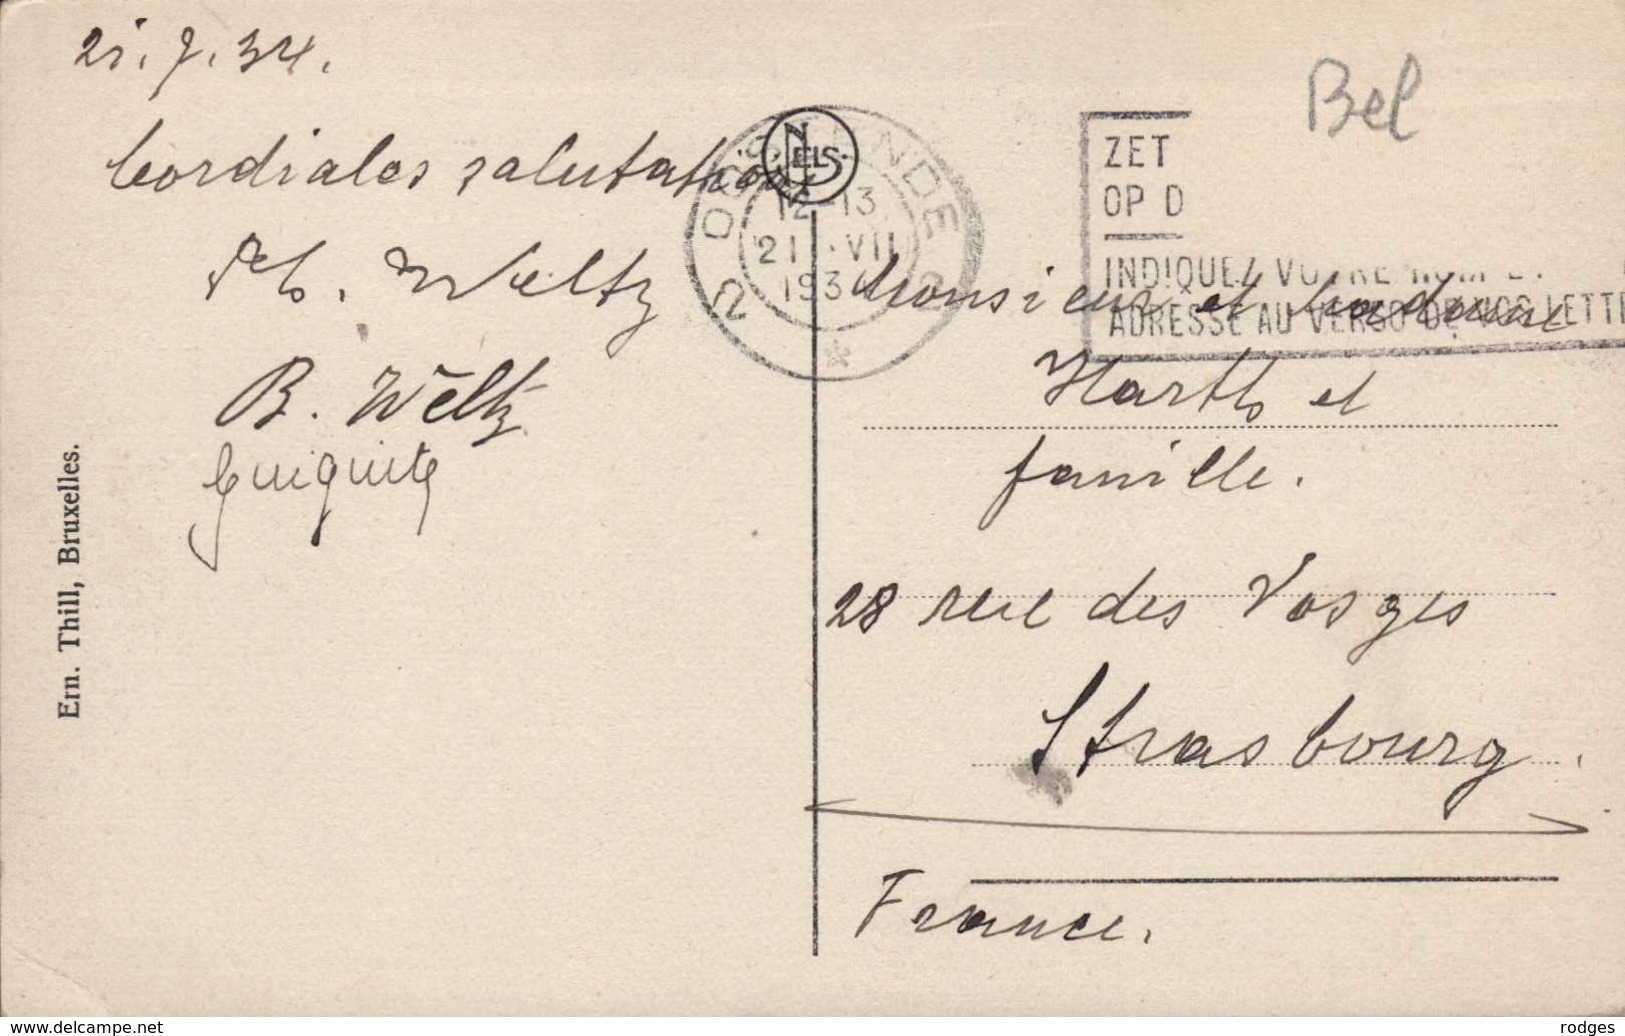 21.7.34.
Cordiales salutations
Ph. Weltz
B. Weltz
Guiguite
Ern. Thill, Bruxelles.
NELS
OOSTENDE
12-13
21 VII
1934
2 2
Bel
ZET
OP D
INDIQUEZ VOTRE NOM ET
ADRESSE AU VERSO DE VOS LETTR
Monsieur et Madame
Harth et
famille.
28 rue des Vosges
Strasbourg.
France.
www.delcampe.net
rodges